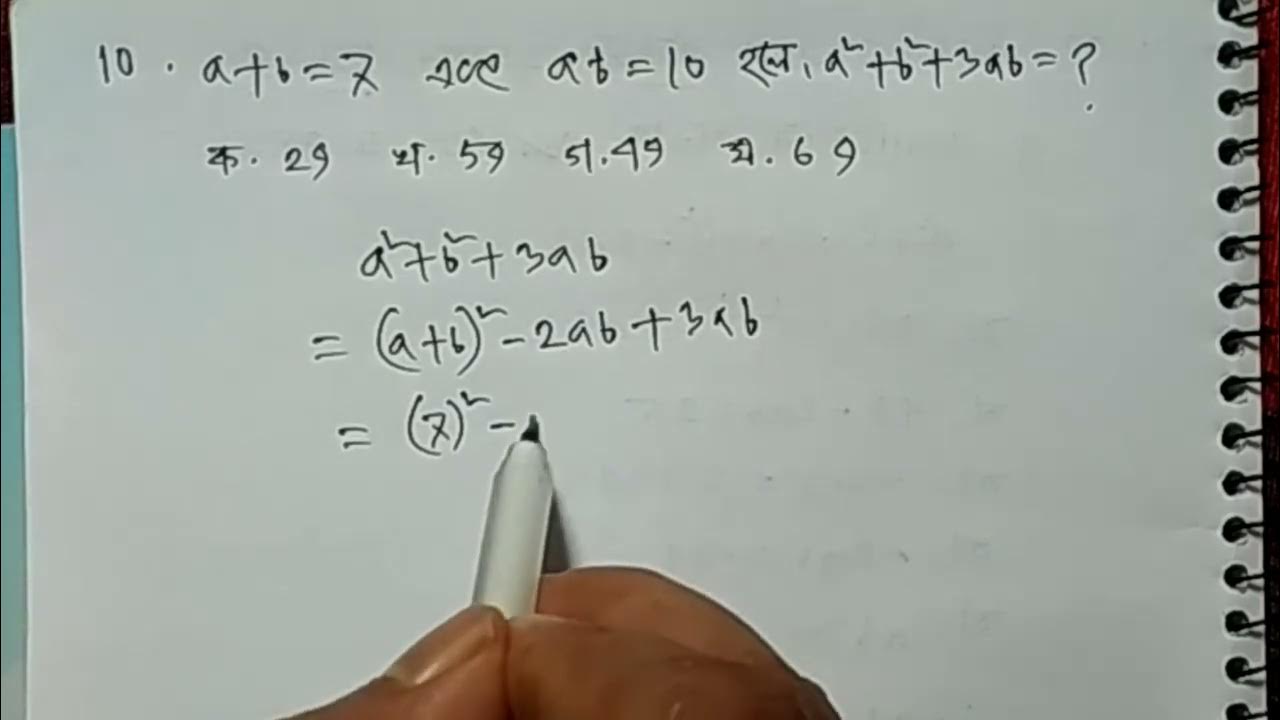 10. a+b=7 এবং ab=10 হলে, a²+b²+3ab=?
ক. 29 খ. 59 গ. 49 ঘ. 69
a²+b²+3ab
= (a+b)² - 2ab + 3ab
= (7)² -